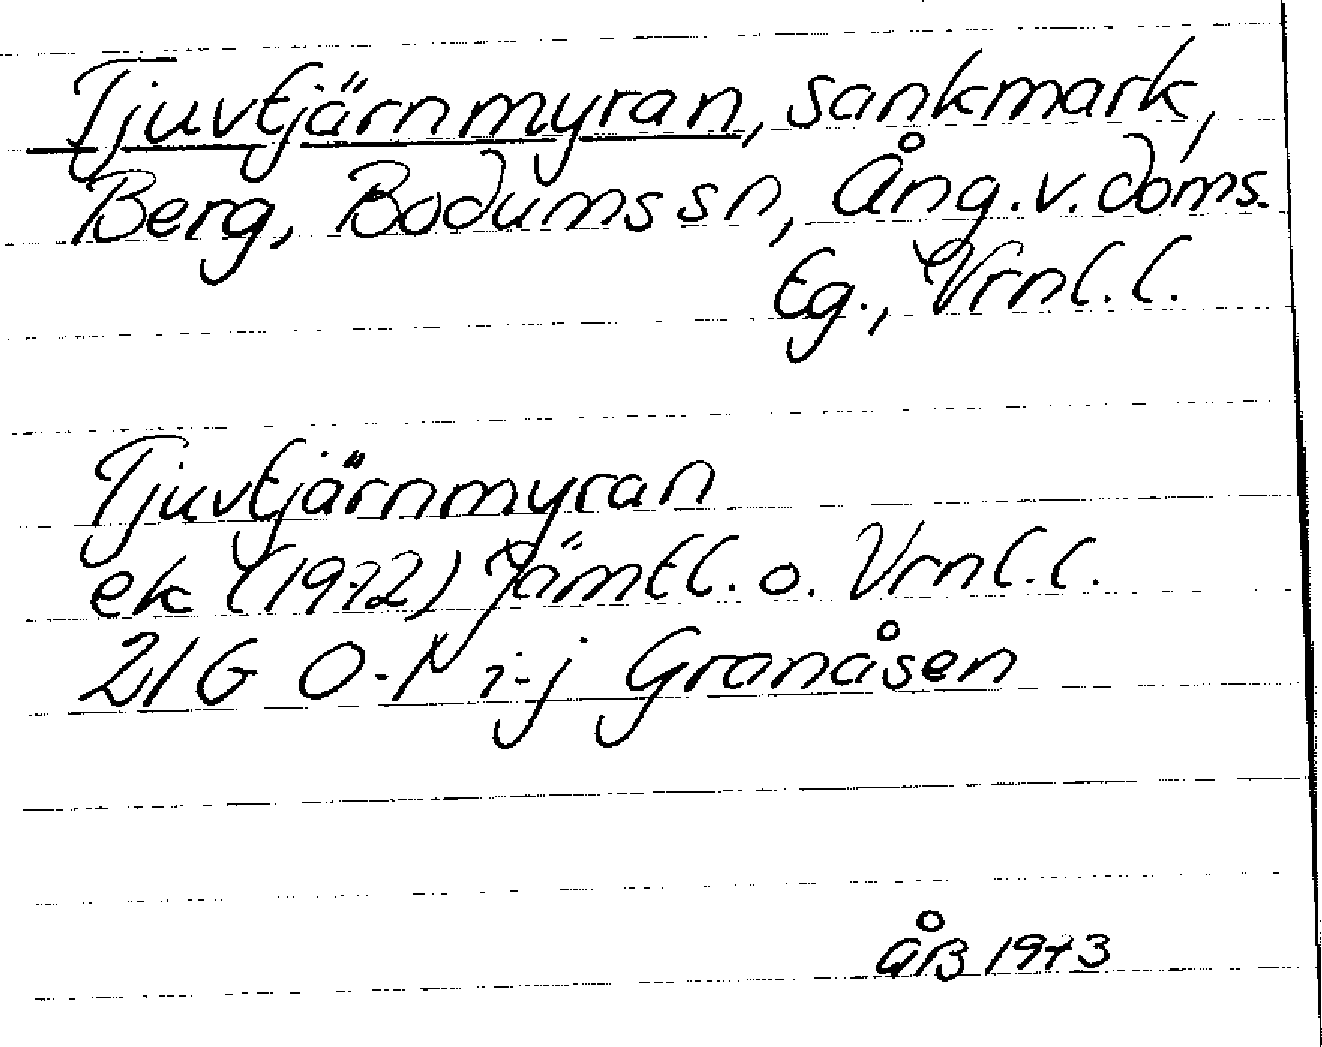 Tjuvtjärnmyran, sankmark,
Berg, Bodums sn, Ång. v. doms.
tg., Vrnl. l.
Tjuvtjärnmyran
ek (1972) Jämtl. o. Vrnl. l.
21G 0-1 i-j Granåsen
ÅB 1973